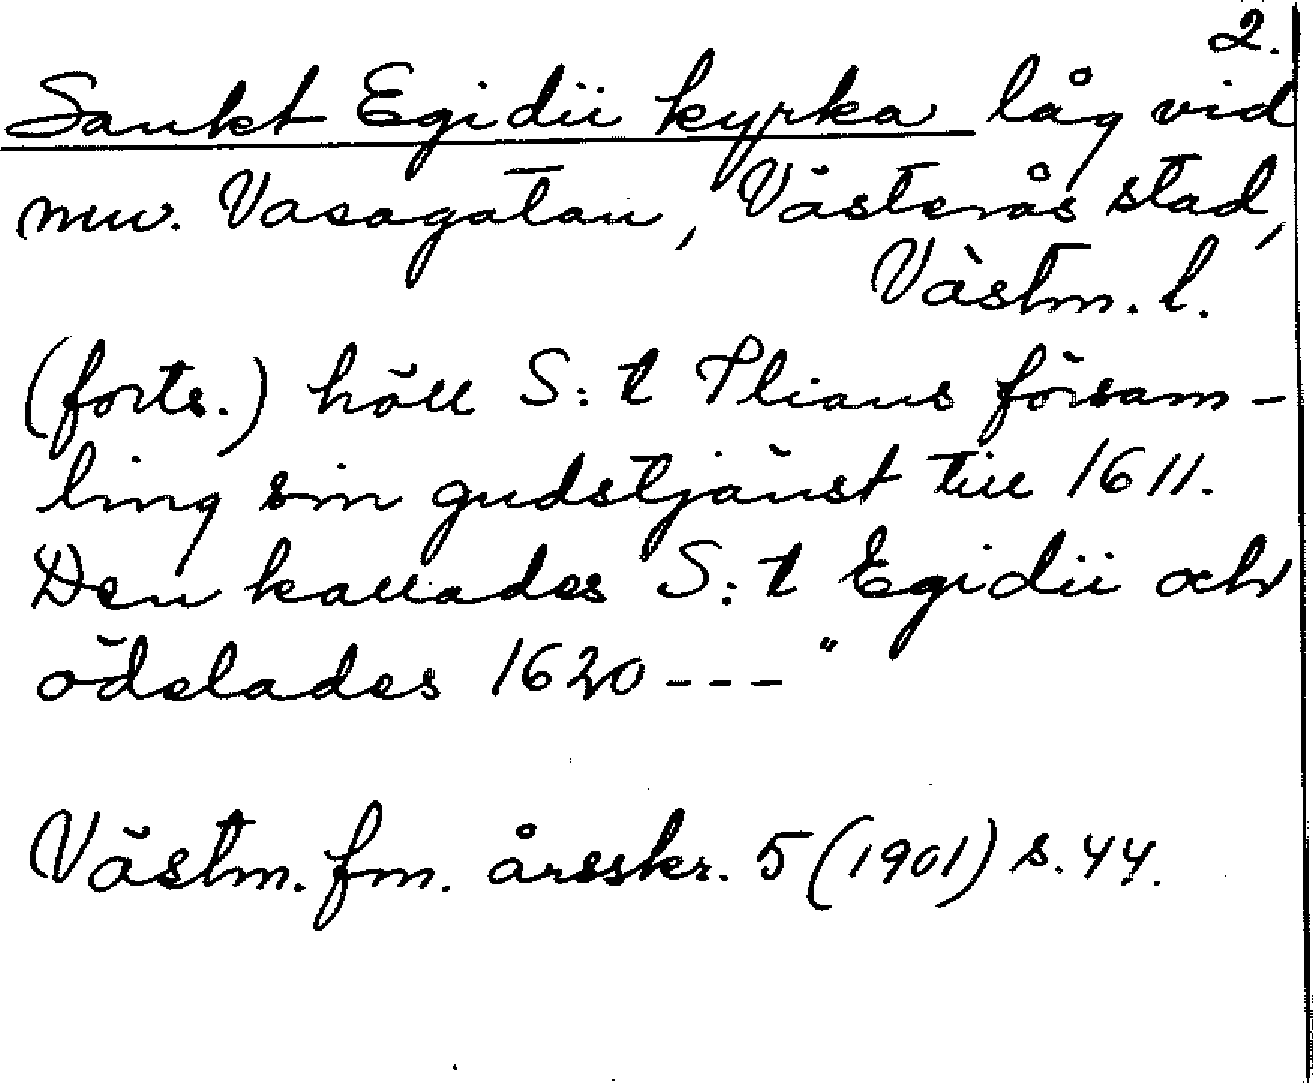 2.
Sankt Egidii kyrka låg vid
nuv. Vasagatan, Västerås stad,
Västm. l.
(forts.) höll S:t Ilians försam-
ling sin gudstjänst till 1611.
Den kallades S:t Egidii och
ödelades 1620---"
Västm. fm. årsskr. 5 (1901) s. 44.